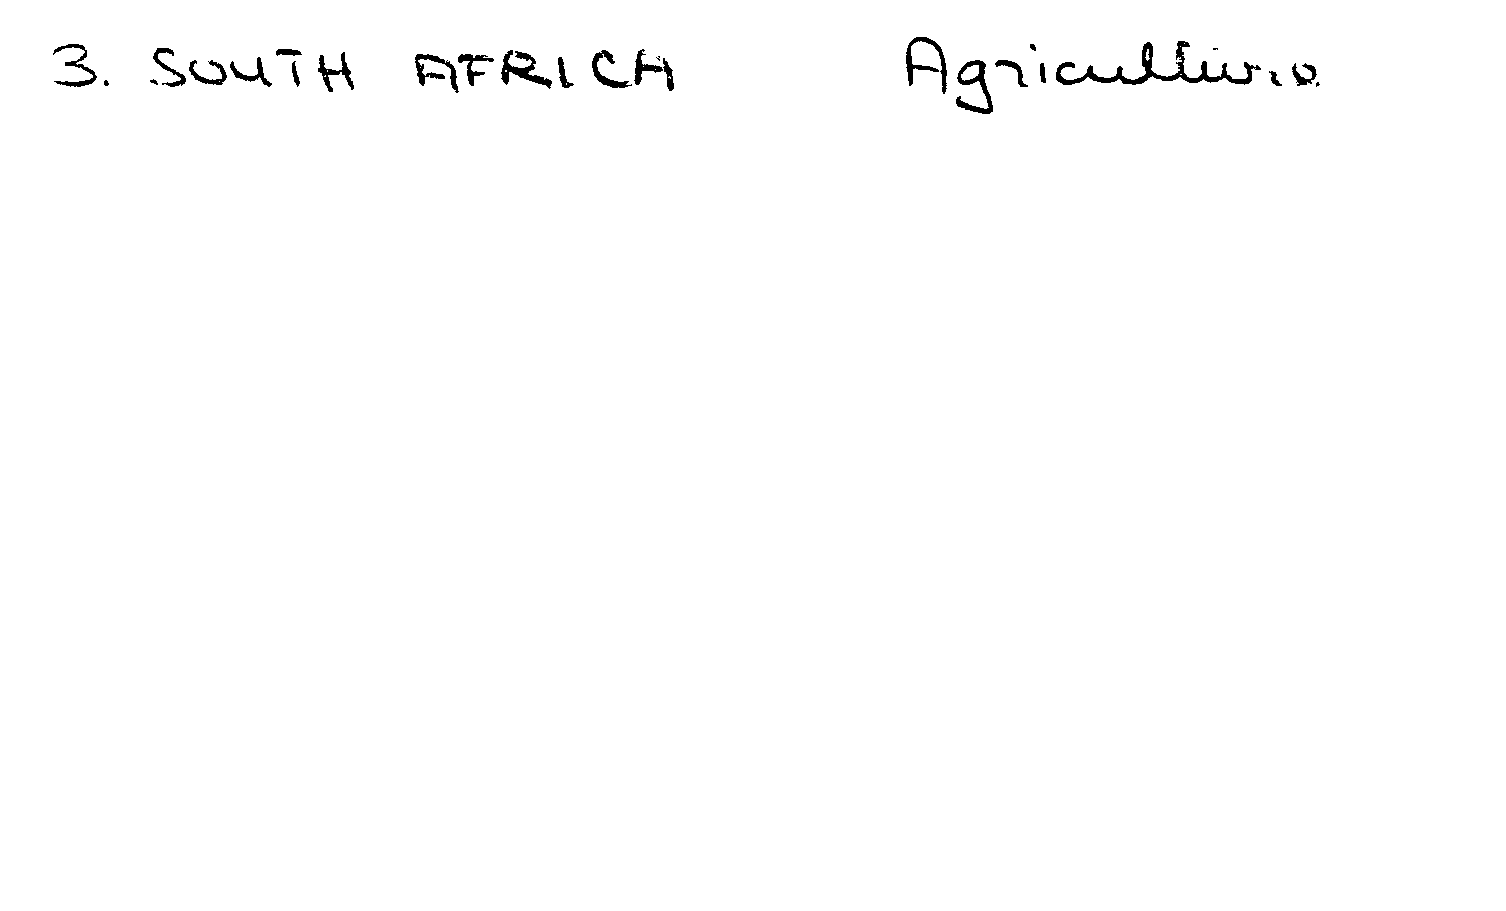 3. SOUTH AFRICA Agriculture